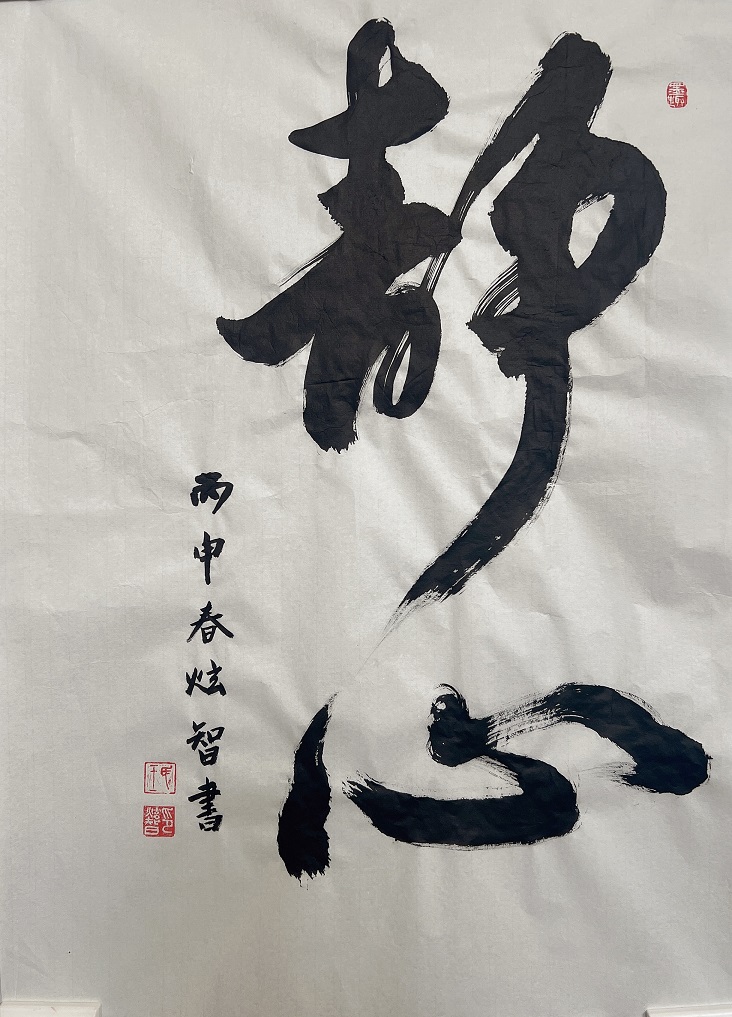 静心
丙申春炫智書